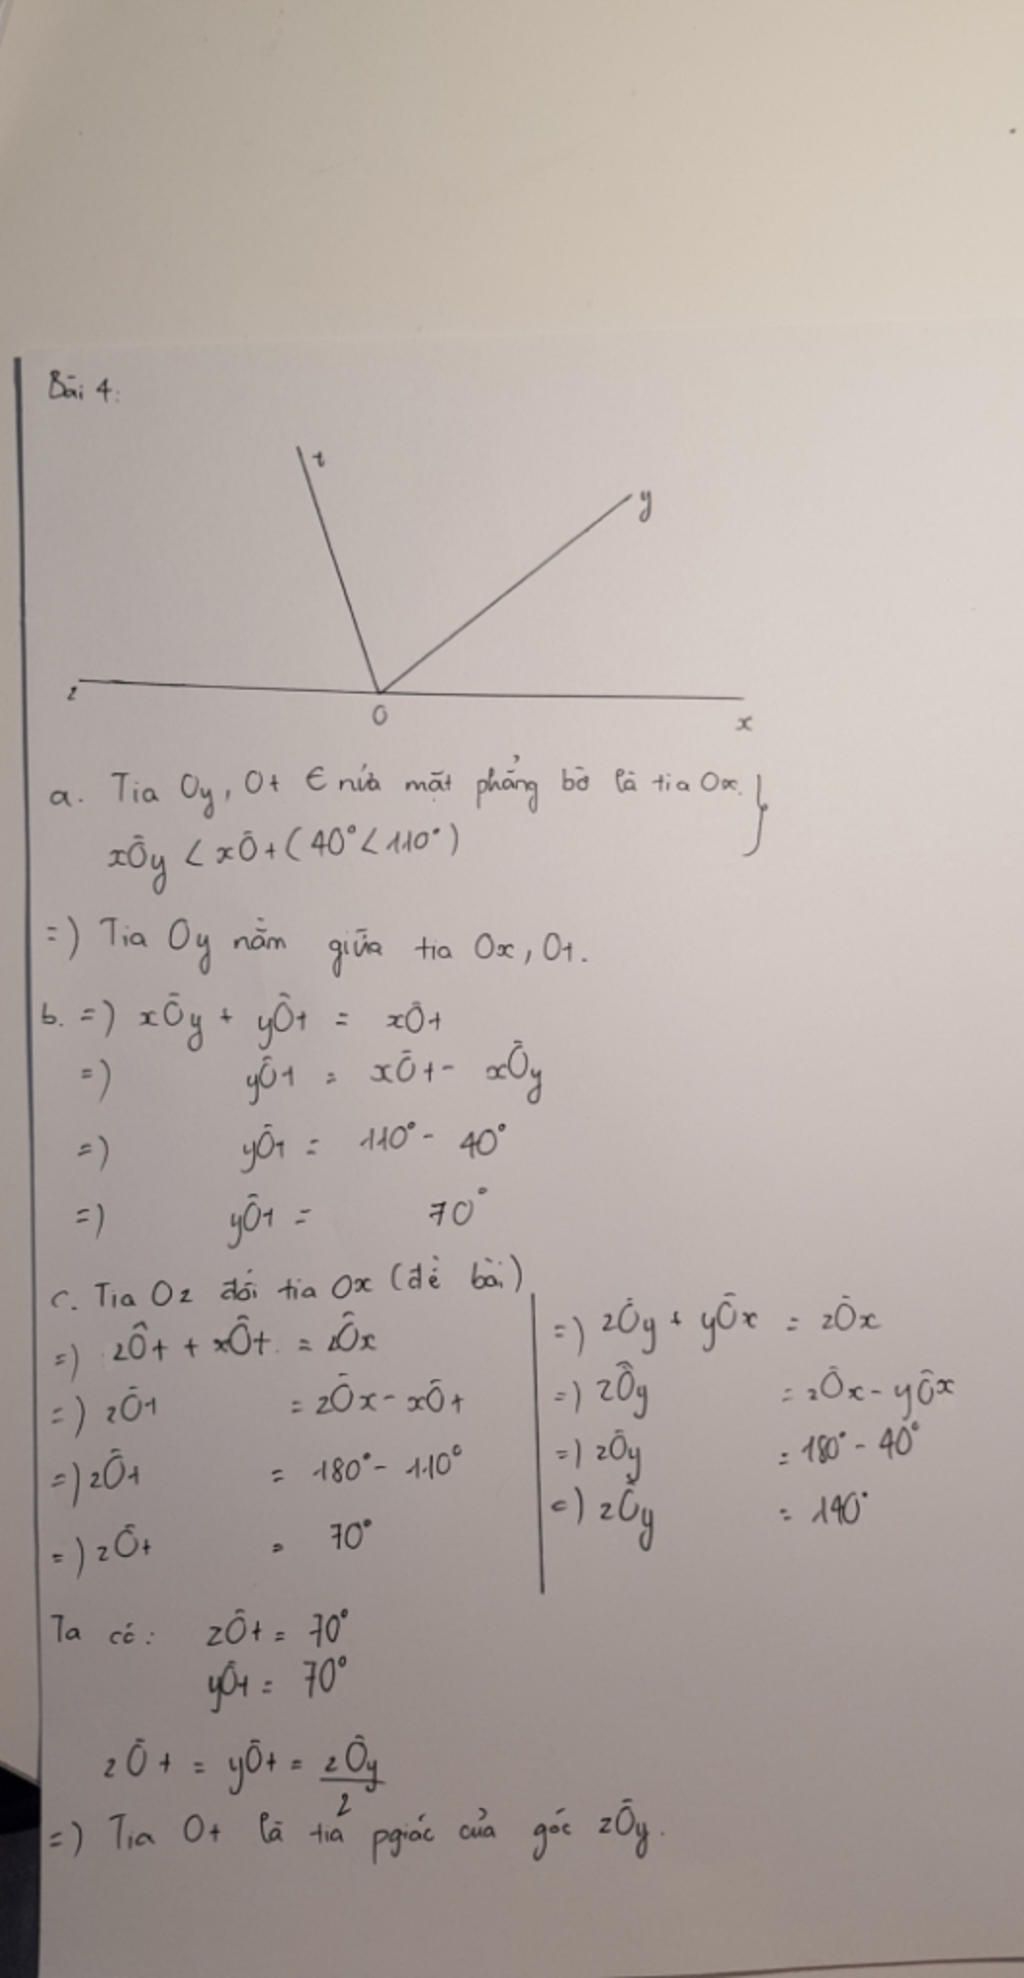 Bài 4:
t
y
z
O
x
a. Tia Oy, Ot ∈ nửa mặt phẳng bờ là tia Ox. }
xÔy < xÔt (40° < 110°)
=) Tia Oy nằm giữa tia Ox, Ot.
b. =) xÔy + yÔt = xÔt
=) yÔt = xÔt - xÔy
=) yÔt = 110° - 40°
=) yÔt = 70°
c. Tia Oz đối tia Ox (đề bài)
=) zÔt + xÔt = zÔx
=) zÔt = zÔx - xÔt
=) zÔt = 180° - 110°
=) zÔt = 70°
=) zÔy + yÔx = zÔx
=) zÔy = zÔx - yÔx
=) zÔy = 180° - 40°
=) zÔy = 140°
Ta có: zÔt = 70°
yÔt = 70°
zÔt = yÔt = zÔy
2
=) Tia Ot là tia pgiác của góc zÔy.